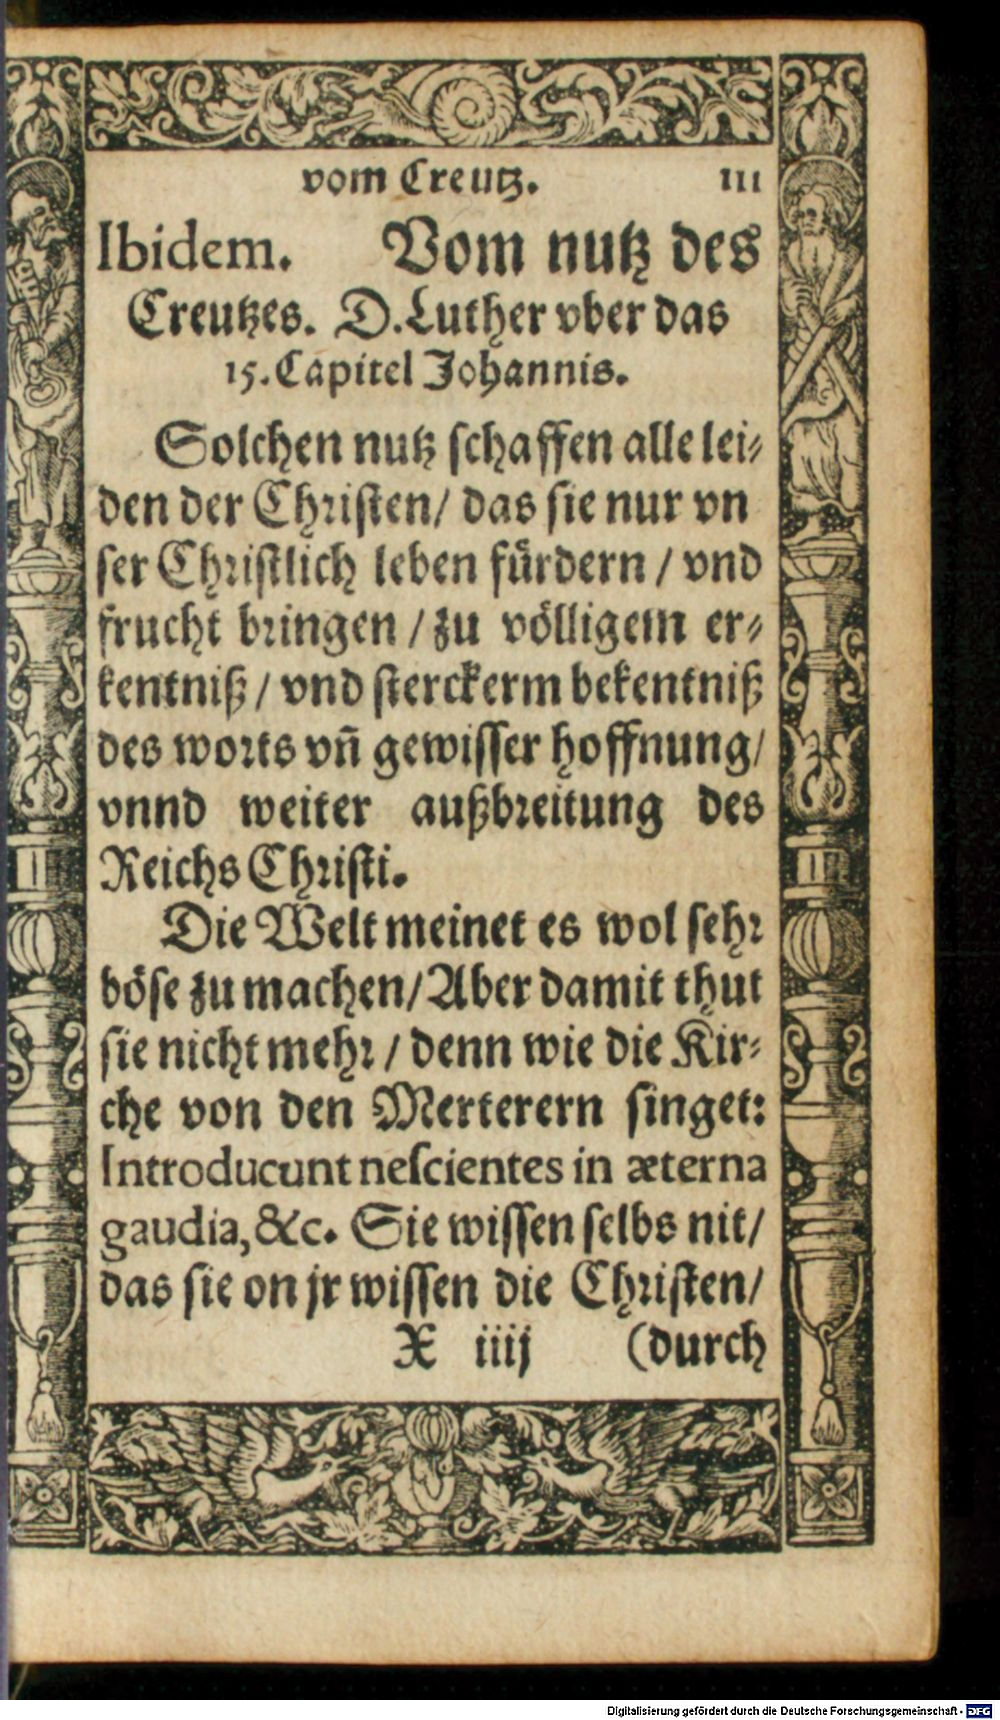 vom Creutz. 111
Ibidem. Vom nutz des
Creutzes. D. Luther vber das
15. Capitel Johannis.
Solchen nutz schaffen alle lei⸗
den der Christen/ das sie nur vn
ser Christlich leben fürdern / vnd
frucht bringen / zu völligem er⸗
kentniß / vnd sterckerm bekentniß
des worts vñ gewisser hoffnung/
vnnd weiter außbreitung des
Reichs Christi.
Die Welt meinet es wol sehr
böse zu machen/ Aber damit thut
sie nicht mehr / denn wie die Kir⸗
che von den Merterern singet:
Introducunt neſcientes in æterna
gaudia, &c. Sie wissen selbs nit/
das sie on jr wissen die Christen/
X iiij (durch
Digitalisierung gefördert durch die Deutsche Forschungsgemeinschaft - DFG